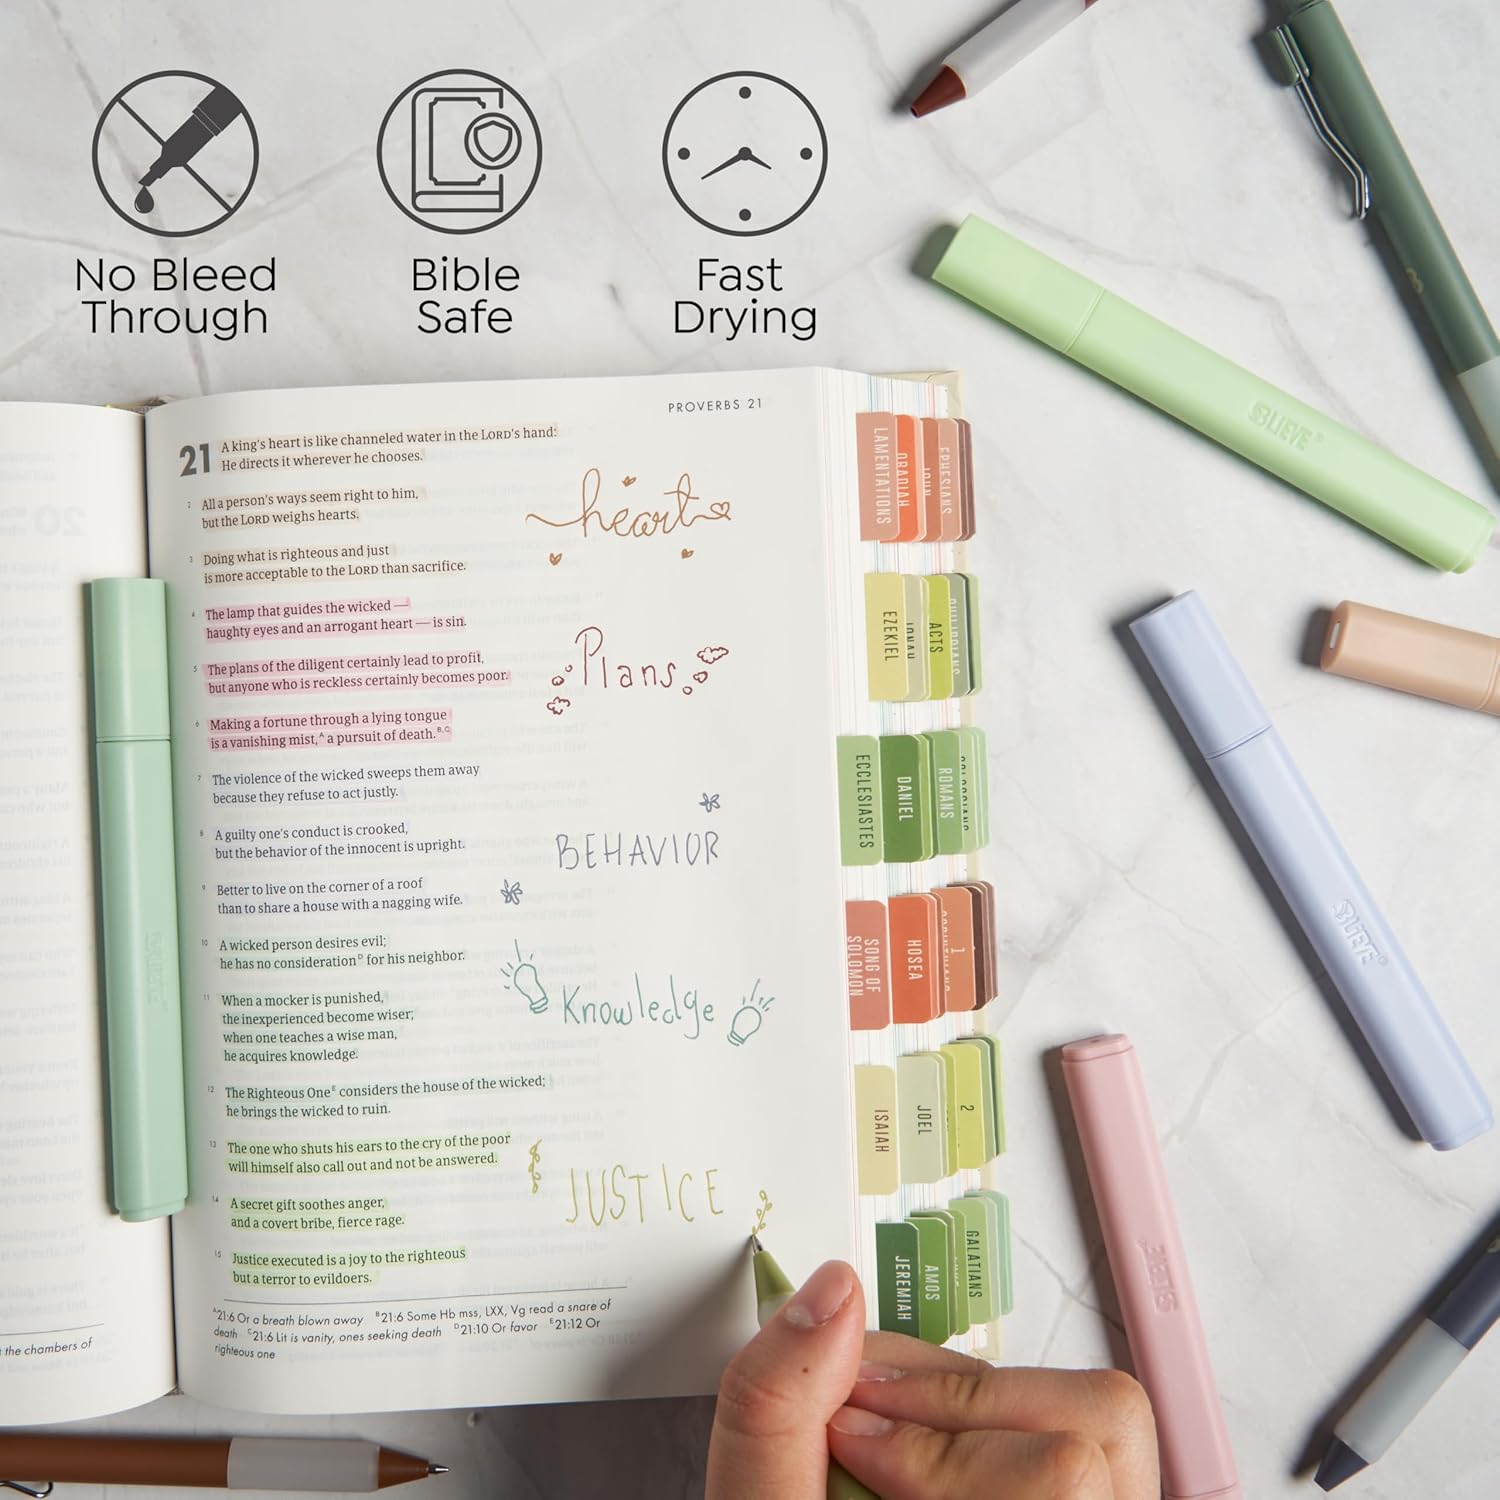 No Bleed
Through
Bible
Safe
Fast
Drying
PROVERBS 21
21 A king's heart is like channeled water in the LORD's hand:
He directs it wherever he chooses.
2 All a person's ways seem right to him,
but the LORD weighs hearts.
3 Doing what is righteous and just
is more acceptable to the LORD than sacrifice.
4 The lamp that guides the wicked —
haughty eyes and an arrogant heart — is sin.
5 The plans of the diligent certainly lead to profit,
but anyone who is reckless certainly becomes poor.
6 Making a fortune through a lying tongue
is a vanishing mist,A a pursuit of death.B,C
7 The violence of the wicked sweeps them away
because they refuse to act justly.
8 A guilty one's conduct is crooked,
but the behavior of the innocent is upright.
9 Better to live on the corner of a roof
than to share a house with a nagging wife.
10 A wicked person desires evil;
he has no considerationD for his neighbor.
11 When a mocker is punished,
the inexperienced become wiser;
when one teaches a wise man,
he acquires knowledge.
12 The Righteous OneE considers the house of the wicked;
he brings the wicked to ruin.
13 The one who shuts his ears to the cry of the poor
will himself also call out and not be answered.
14 A secret gift soothes anger,
and a covert bribe, fierce rage.
15 Justice executed is a joy to the righteous
but a terror to evildoers.
A21:6 Or a breath blown away B21:6 Some Hb mss, LXX, Vg read a snare of
death C21:6 Lit is vanity, ones seeking death D21:10 Or favor E21:12 Or
righteous one
heart
Plans
BEHAVIOR
Knowledge
JUSTICE
the chambers of
LAMENTATIONS
OBADIAH
JOHN
EPHESIANS
EZEKIEL
JONAH
ACTS
PHILIPPIANS
ECCLESIASTES
DANIEL
ROMANS
COLOSSIANS
SONG OF
SOLOMON
HOSEA
1
CORINTHIANS
ISAIAH
JOEL
2
JEREMIAH
AMOS
LUKE
GALATIANS
BLIEVE
BLIEVE
BLIEVE
BLIEVE